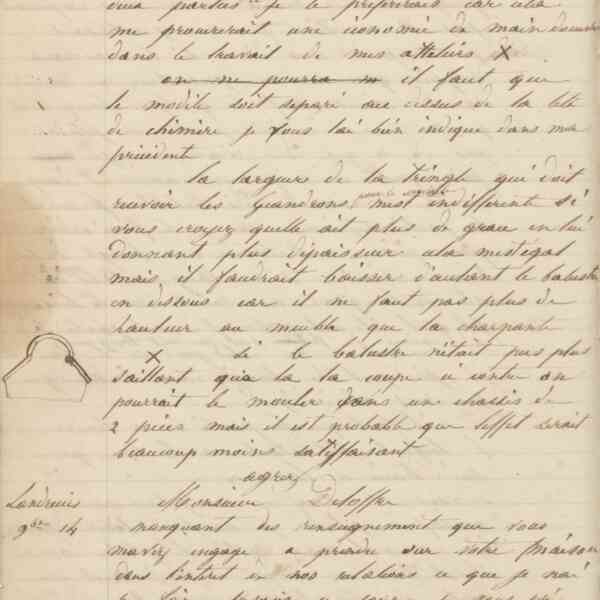 je le préfèrerais car cela
me procurerait une économie de main douvre
dans le travail de mes atteliers X
on ne pourra m il faut que
le modèle soit separé au dessus de la tete
de chimère je vous lai bien indiqué dans ma
précédent
la largeur de la tringle qui doit
recevoir les quandrons pour le m'est indifferent si
vous croyez quelle ait plus de grace en lui
donnant plus depaisseur cela mest égal
mais il faudrait baisser d'autant le balustre
en dessous car il ne faut pas plus de
hauteur au meuble que la charpente
X Si le balustre nétait pas plus
saillant qu'a la coupe ci contre on
pourrait le mouler dans un chassis de
2 pièces mais il est probable que leffet serait
beaucoup moins satiffaisant
agréez
Landrecies Monsieur Deloffre
9bre 14 manquant des renseignement que vous
mavez engagé a prendre sur votre maison
dans l'intéret de nos relations ce que je nai